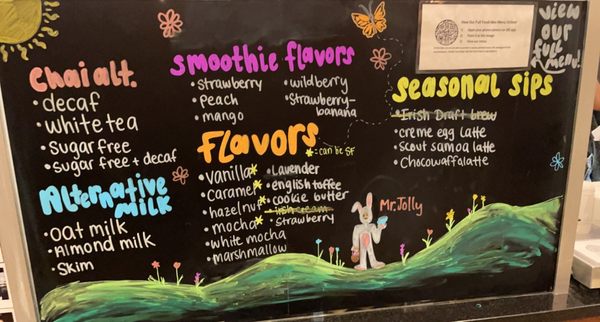 Chai alt.
• decaf
• white tea
• sugar free
• sugar free + decaf
Alternative
milk
• oat milk
• Almond milk
• skim
smoothie flavors
• strawberry
• peach
• mango
• wildberry
• Strawberry-
banana
Flavors
*= can be SF
• vanilla*
• caramel*
• hazelnut*
• mocha*
• white mocha
• marshmallow
• Lavender
• english toffee
• cookie butter
• irish cream
• Strawberry
Mr. Jolly
View Our Full Food and Menu Online!
view
our
full
menu!
seasonal sips
• Irish Draft brew
• creme egg latte
• scout samoa latte
• Chocowaffalatte